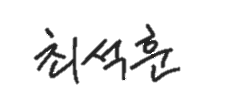 최석훈